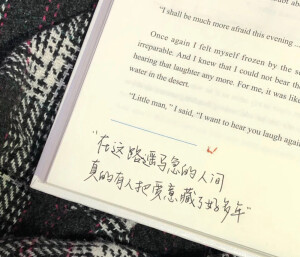 "I shall be much more afraid this evening
Once again I felt myself frozen by the s
irreparable. And I knew that I could not bear th
hearing that laughter any more. For me, it was like
water in the desert.
"Little man," I said, "I want to hear you laugh again
"在这路遥马急的人间
真的有人把爱意藏了好多年"